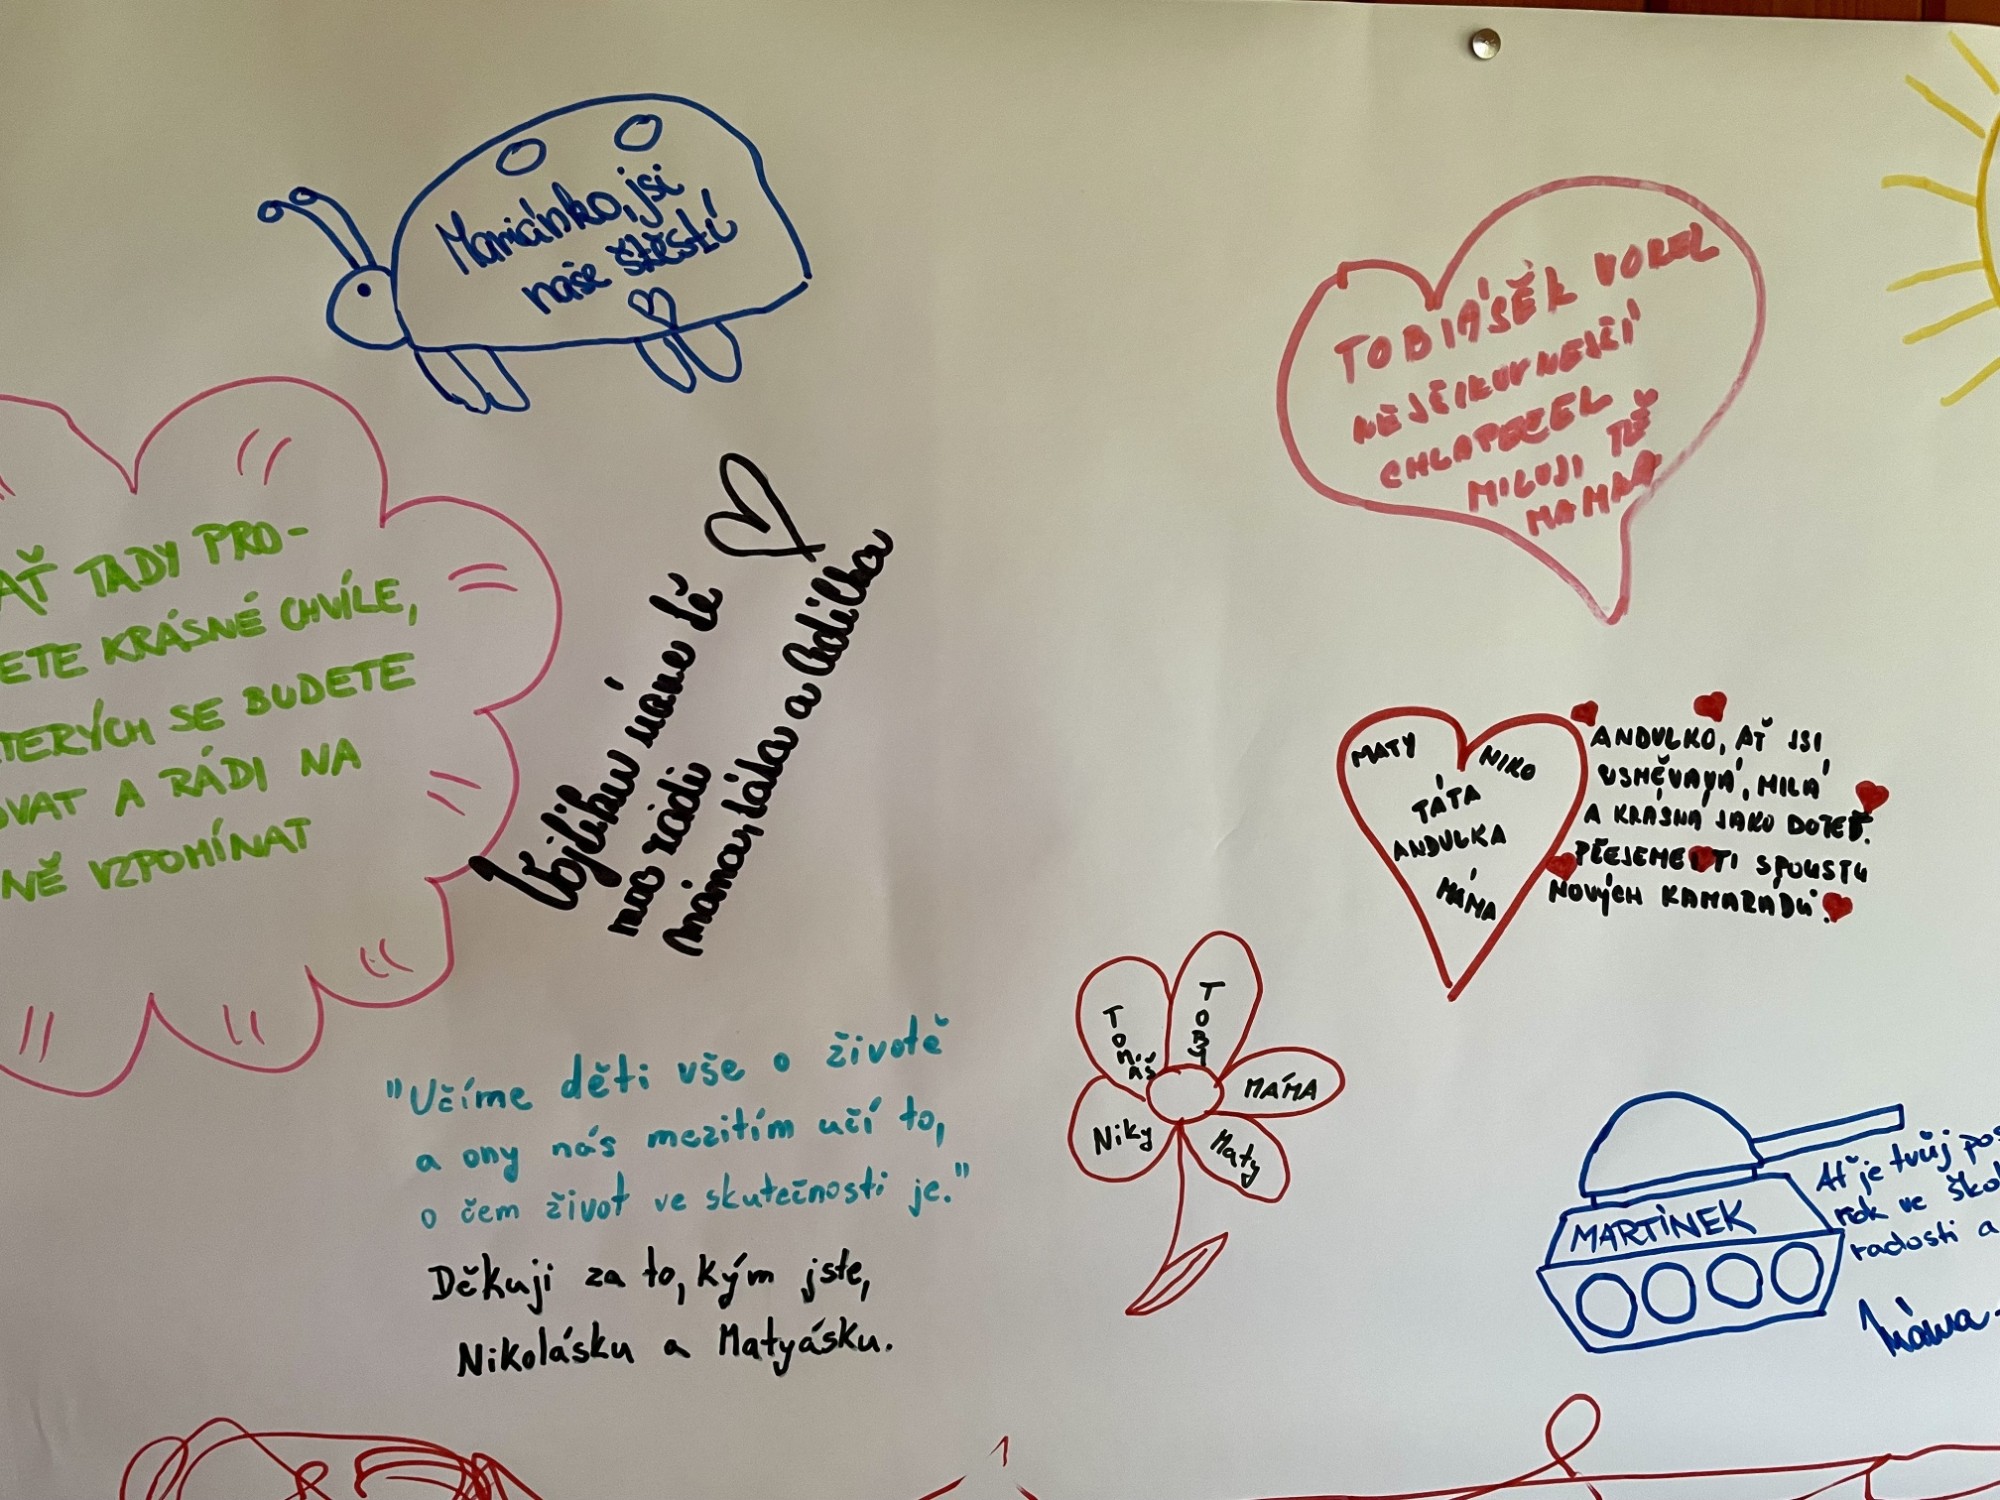 Mariánko, jsi
naše štěstí
TOBIÁŠEK VOREL
NEJŠIKOVNEJŠÍ
CHLAPEČEK
MILUJI TĚ
MAMKA
AŤ TADY PRO-
ETE KRÁSNÉ CHVÍLE,
TERÝCH SE BUDETE
OVAT A RÁDI NA
NĚ VZPOMÍNAT
Vojtíku máme tě
moc rádi
máma, táta a Adélka
MATY
NIKO
TÁTA
ANDULKA
MÁMA
ANDULKO, AŤ JSI
USMĚVAVÁ, MILÁ
A KRÁSNÁ JAKO DOTEĎ.
PŘEJEME TI SPOUSTU
NOVÝCH KAMARÁDŮ.
TONÁŠ
TOBY
MÁMA
Niky
Maty
"Učíme děti vše o životě
a ony nás mezitím učí to,
o čem život ve skutečnosti je."
Děkuji za to, kým jste,
Nikolásku a Matyásku.
MARTÍNEK
Ať je tvůj pos
rok ve ško
radosti a
Máma